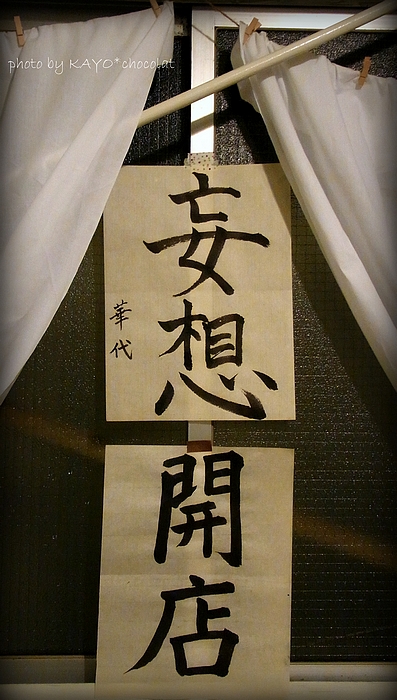 photo by KAYO*chocolat
妄想
華代
開店